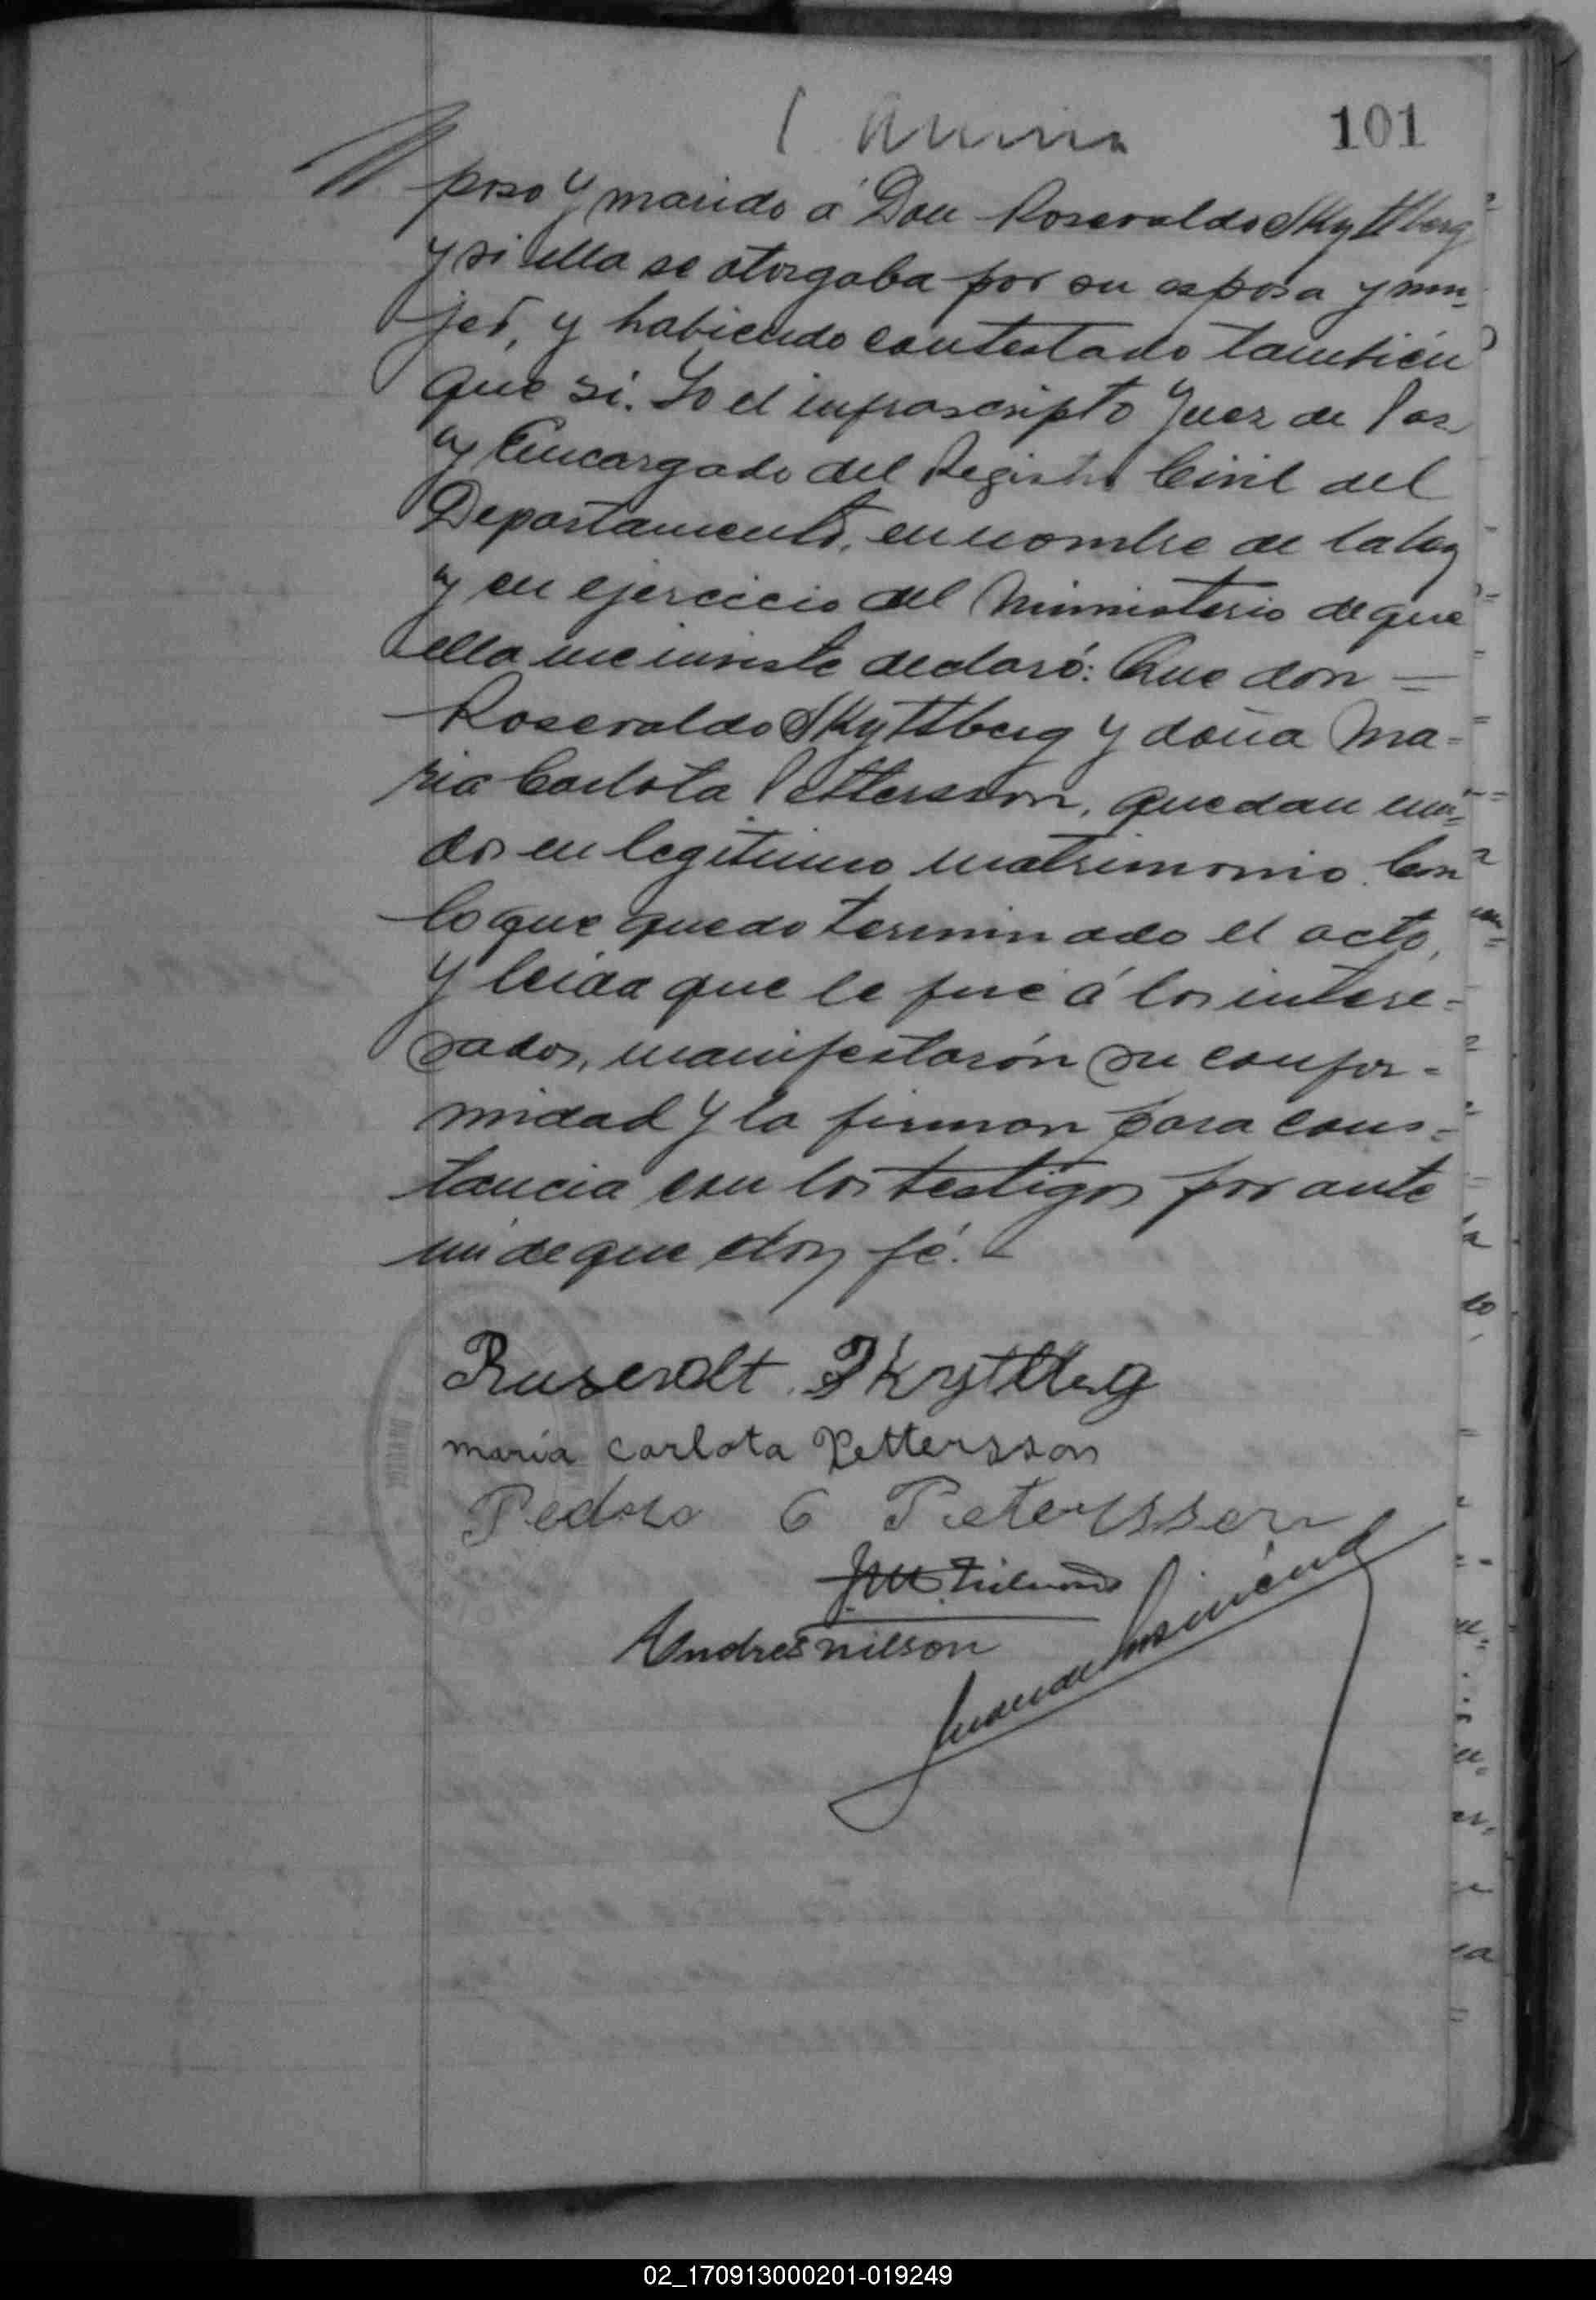 101
poso y marido á Don Roseraldo Skyttberg
y si ella se otorgaba por su esposa y mu-
jer, y habiendo contestado también
que si. Yo el infrascripto Juez de Paz
y Encargado del Registro Civil del
Departamento, en nombre de la ley
y en ejercicio del Ministerio de que
ella me inviste declaró: Que don =
Roseraldo Skyttberg y doña Ma-
ria Carlota Pettersson, quedan uni-
dos en legitimo matrimonio. Con
lo que quedo terminado el acto,
y leida que le fué á los intere-
sados, manifestarón su confor-
midad y la firman para cons-
tancia con los testigos por ante
mi de que doy fé.-
Ruseralt Skyttberg
maria carlota Pettersson
Pedro G Petersson
Andres nilson
02_170913000201-019249